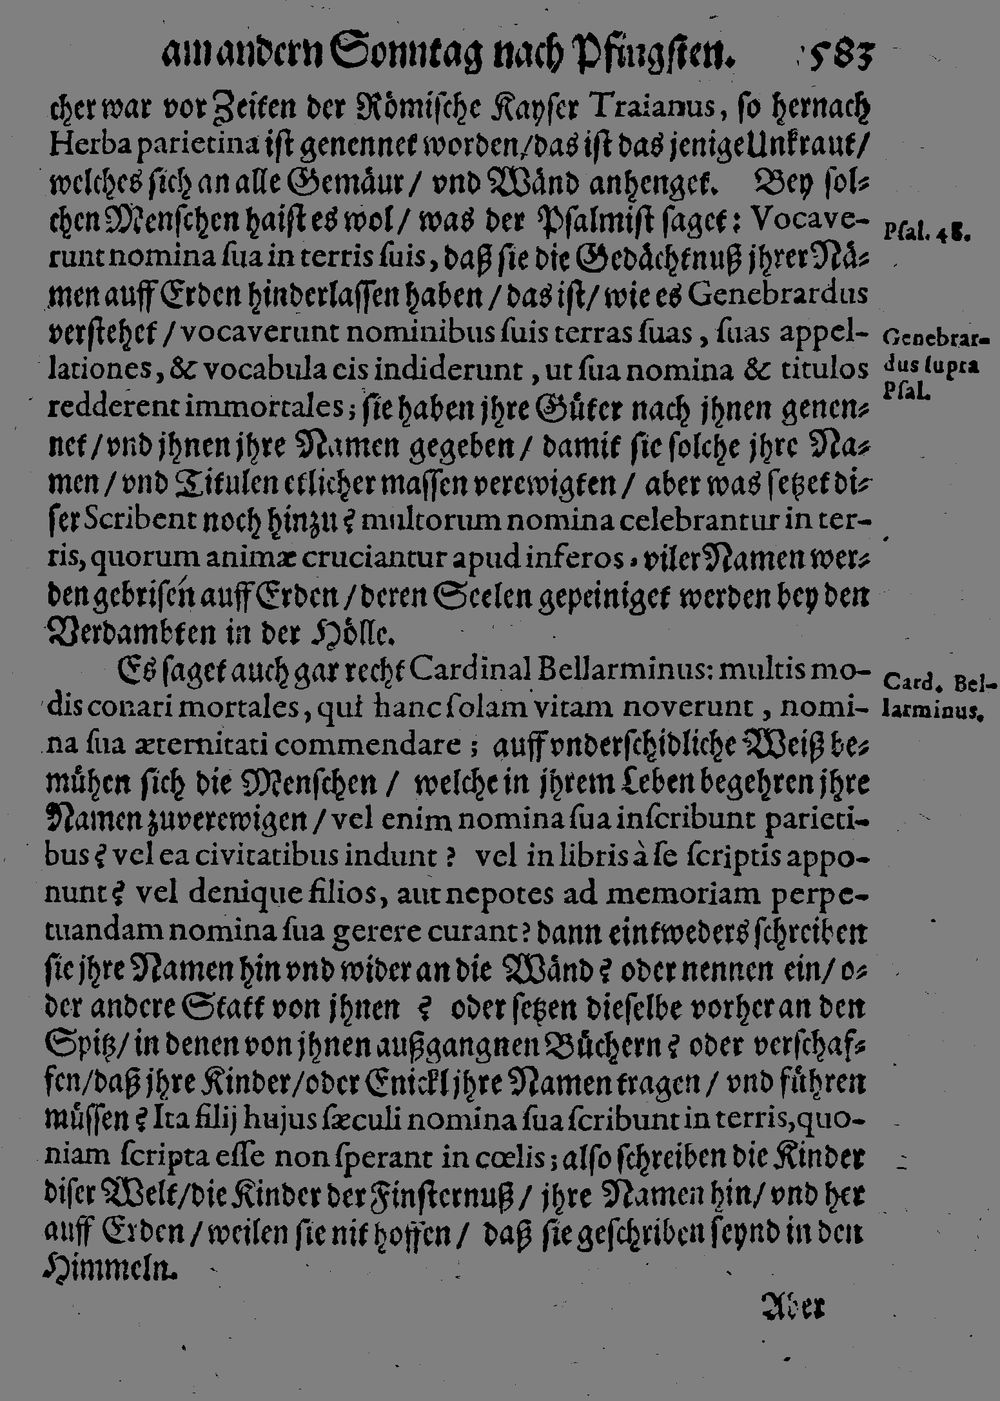 am andern Sonntag nach Pfingsten. 583
cher war vor Zeiten der Römische Kayser Traianus, so hernach
Herba parietina ist genennet worden/das ist das jenige Unkraut/
welches sich an alle Gemäur/ vnd Wänd anhenget. Bey sol-
chen Menschen haist es wol/ was der Psalmist saget: Vocave-
Psal. 48.
runt nomina sua in terris suis, daß sie die Gedächtnuß jhrer Nä-
men auff Erden hinderlassen haben/das ist/ wie es Genebrardus
verstehet/vocaverunt nominibus suis terras suas, suas appel-
Genebrar-
lationes, & vocabula eis indiderunt, ut sua nomina & titulos
dus supra
redderent immortales; sie haben jhre Güter nach jhnen genen-
Psal.
net/vnd jhnen jhre Namen gegeben/ damit sie solche jhre Na-
men/vnd Titulen etlicher massen verewigten/ aber was setzet di-
ser Scribent noch hinzu? multorum nomina celebrantur in ter-
ris, quorum animæ cruciantur apud inferos. viler Namen wer-
den gebrisen auff Erden/deren Seelen gepeiniget werden bey den
Verdambten in der Hölle.
Es saget auch gar recht Cardinal Bellarminus: multis mo-
Card. Bel-
dis conari mortales, qui hanc solam vitam noverunt, nomi-
larminus.
na sua æternitati commendare; auff vnderschidliche Weiß be-
mühen sich die Menschen/ welche in jhrem Leben begehren jhre
Namen zuverewigen/vel enim nomina sua inscribunt parieti-
bus? vel ea civitatibus indunt? vel in libris à se scriptis appo-
nunt? vel denique filios, aut nepotes ad memoriam perpe-
tuandam nomina sua gerere curant? dann eintweders schreiben
sie jhre Namen hin vnd wider an die Wänd? oder nennen ein/ o-
der andere Statt von jhnen ? oder setzen dieselbe vorher an den
Spitz/in denen von jhnen außgangnen Büchern? oder verschaf-
fen/daß jhre Kinder/oder Enickl jhre Namen tragen/ vnd führen
müssen? Ita filij hujus sæculi nomina sua scribunt in terris, quo-
niam scripta esse non sperant in cœlis; also schreiben die Kinder
diser Welt/die Kinder der Finsternuß/ jhre Namen hin/ vnd her
auff Erden/weilen sie nit hoffen/ daß sie geschriben seynd in den
Himmeln.
Aber